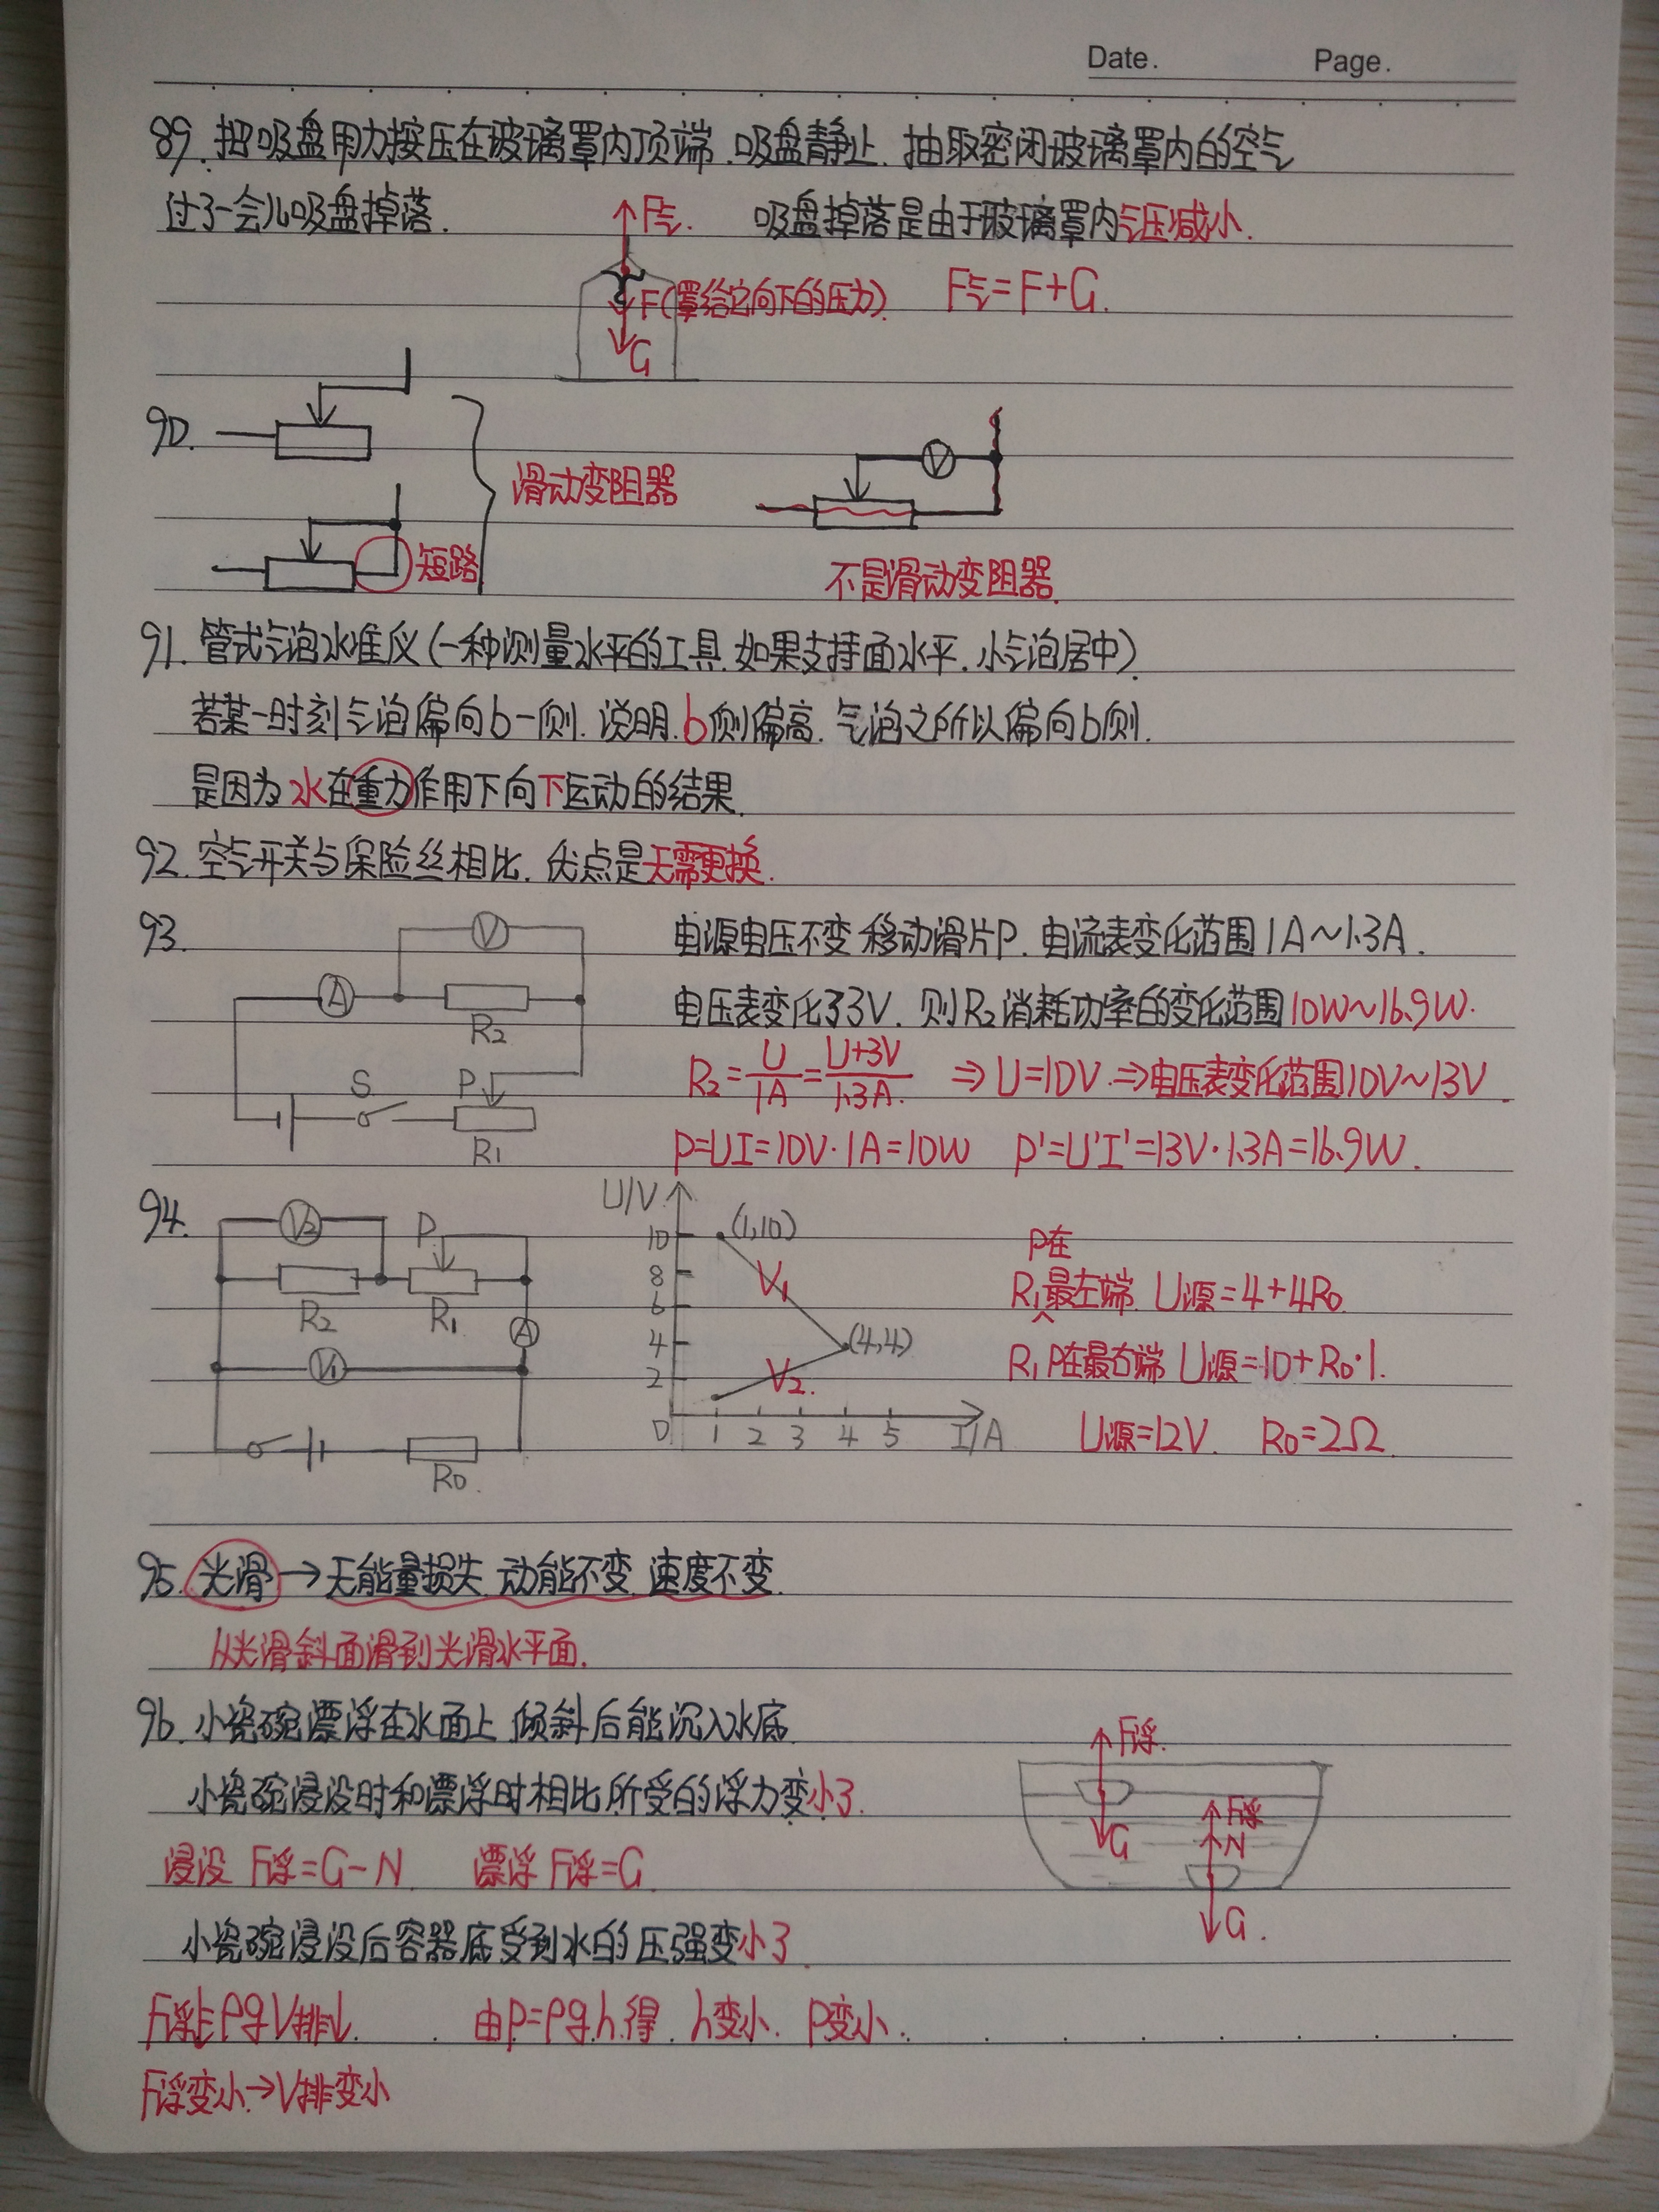 Date. Page.
89. 把吸盘用力按压在玻璃罩内顶端.吸盘静止.抽取密闭玻璃罩内的空气
过了一会儿吸盘掉落.
F气. 吸盘掉落是由于玻璃罩内气压减小.
F(罩给它向下的压力). F气=F+G.
G
90.
滑动变阻器
V
短路
不是滑动变阻器.
91. 管式气泡水准仪(一种测量水平的工具.如果支持面水平.小气泡居中).
若某一时刻气泡偏向b一侧.说明.b侧偏高.气泡之所以偏向b侧.
是因为水在重力作用下向下运动的结果.
92. 空气开关与保险丝相比.优点是无需更换.
93. V A R2 S P R1
电源电压不变 移动滑片P.电流表变化范围1A~1.3A.
电压表变化了3V.则R2消耗功率的变化范围10W~16.9W.
R2=U/1A=U+3V/1.3A. ⇒U=10V.⇒电压表变化范围10V~13V.
P=UI=10V·1A=10W P'=U'I'=13V·1.3A=16.9W.
94. V2 P R2 R1 A V1 R0.
U/V 10 8 6 4 2 0 1 2 3 4 5 I/A
(1,10) V1 (4,4) V2.
P在
R1最左端. U源=4+4R0
R1P在最右端 U源=10+R0·1.
U源=12V. R0=2Ω.
95. 光滑→无能量损失 动能不变 速度不变.
从光滑斜面滑到光滑水平面.
96. 小瓷碗漂浮在水面上 倾斜后能沉入水底.
小瓷碗浸没时和漂浮时相比 所受的浮力变小了.
浸没 F浮=G-N. 漂浮 F浮=G.
F浮. G F浮 N G.
小瓷碗浸没后容器底受到水的压强变小了.
F浮↓=ρgV排↓. 由P=ρgh.得. h变小. P变小.
F浮变小.→V排变小